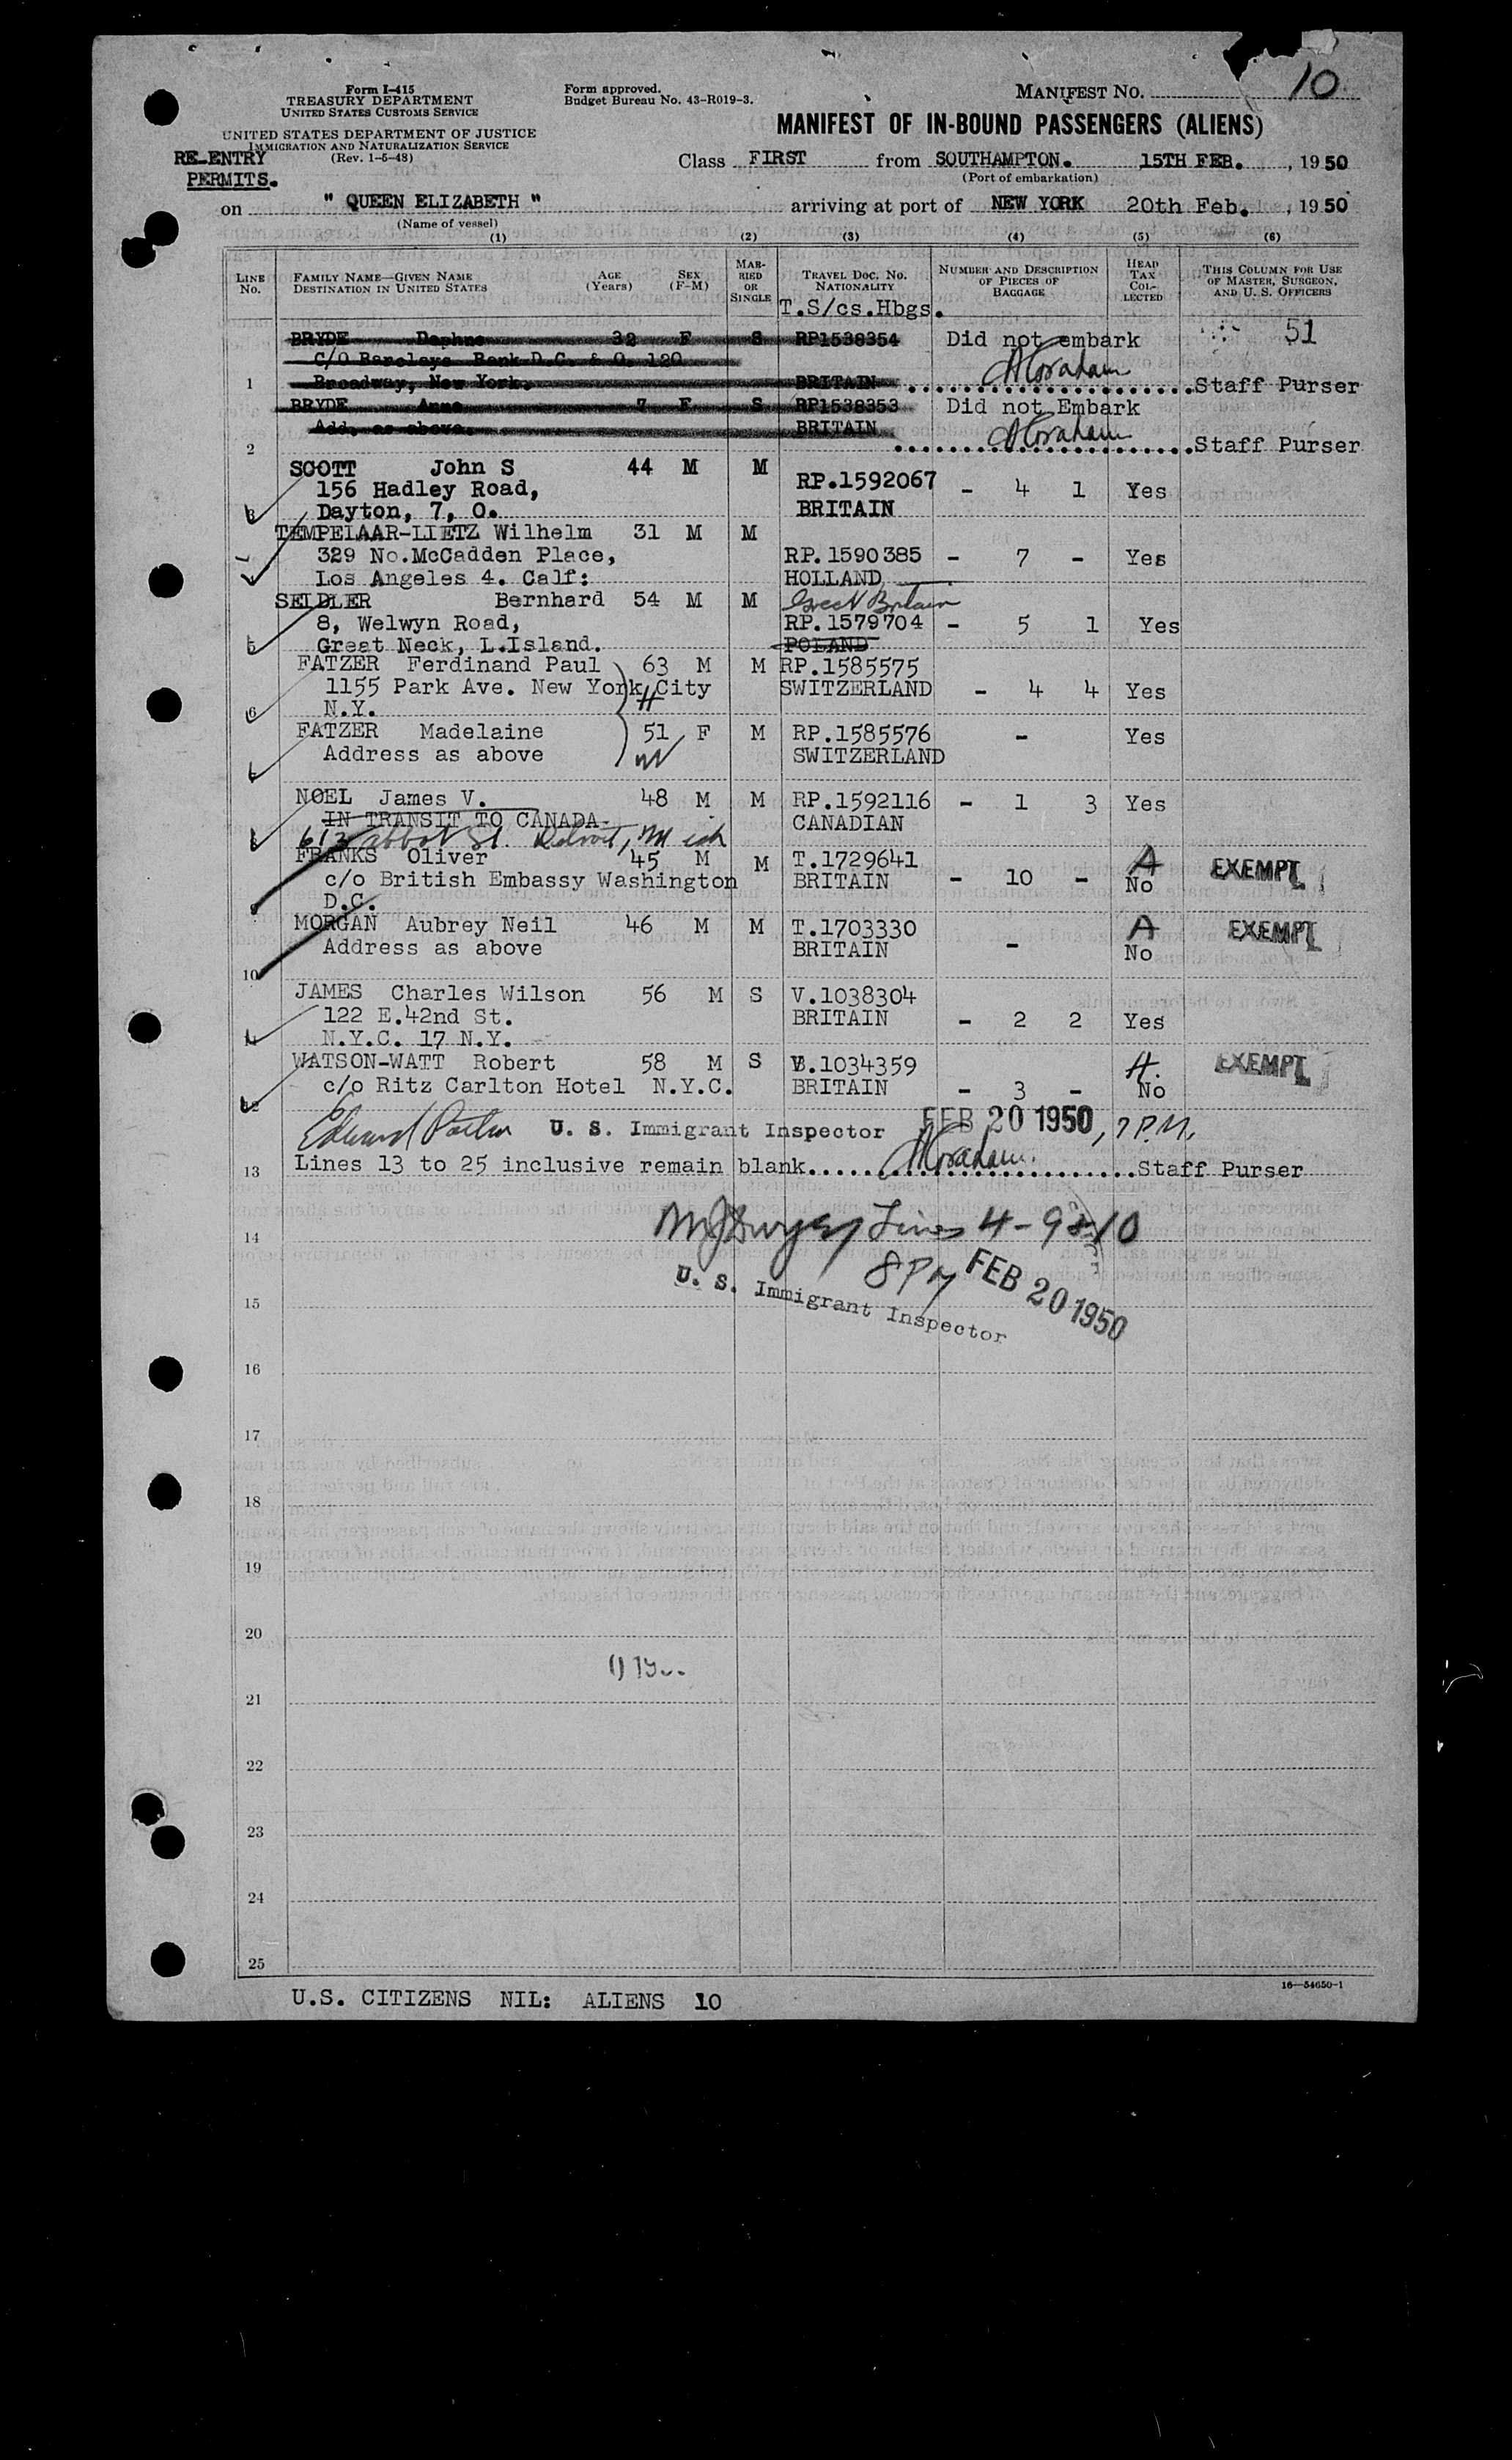 Form I-415
TREASURY DEPARTMENT
UNITED STATES CUSTOMS SERVICE
UNITED STATES DEPARTMENT OF JUSTICE
IMMIGRATION AND NATURALIZATION SERVICE
(Rev. 1-5-48)
RE-ENTRY
PERMITS.
Form approved.
Budget Bureau No. 43-R019-3.
MANIFEST NO. 10
MANIFEST OF IN-BOUND PASSENGERS (ALIENS)
Class FIRST from SOUTHAMPTON. 15TH FEB. , 19 50
(Port of embarkation)
on " QUEEN ELIZABETH " arriving at port of NEW YORK 20th Feb. , 19 50
(Name of vessel)
(1) (2) (3) (4) (5) (6)
LINE No. FAMILY NAME—GIVEN NAME DESTINATION IN UNITED STATES AGE (Years) SEX (F-M) MARRIED OR SINGLE TRAVEL DOC. NO. NATIONALITY NUMBER AND DESCRIPTION OF PIECES OF BAGGAGE HEAD TAX COLLECTED THIS COLUMN FOR USE OF MASTER, SURGEON, AND U. S. OFFICERS
T.S/cs.Hbgs.
51
BRYDE Daphne 32 F S RP1538354 Did not embark
C/O Barclays Bank D.C. & O. 120
1 Broadway, New York. BRITAIN Staff Purser
BRYDE Anne 7 F S RP1538353 Did not Embark
Add. as above. BRITAIN
2 Staff Purser
SCOTT John S 44 M M RP.1592067 - 4 1 Yes
156 Hadley Road, BRITAIN
3 Dayton, 7, O.
TEMPELAAR-LIETZ Wilhelm 31 M M
329 No.McCadden Place, RP.1590385 - 7 - Yes
Los Angeles 4. Calf: HOLLAND
SEIDLER Bernhard 54 M M Great Britain
8, Welwyn Road, RP.1579704 - 5 1 Yes
5 Great Neck, L.Island. POLAND
FATZER Ferdinand Paul 63 M M RP.1585575
1155 Park Ave. New York City SWITZERLAND - 4 4 Yes
6 N.Y.
FATZER Madelaine 51 F M RP.1585576 - Yes
Address as above SWITZERLAND
NOEL James V. 48 M M RP.1592116 - 1 3 Yes
IN TRANSIT TO CANADA. CANADIAN
613 Abbot St. Detroit, Mich
FRANKS Oliver 45 M M T.1729641 A EXEMPT
c/o British Embassy Washington BRITAIN - 10 - No
9 D.C.
MORGAN Aubrey Neil 46 M M T.1703330 A EXEMPT
Address as above BRITAIN - No
10
JAMES Charles Wilson 56 M S V.1038304
122 E.42nd St. BRITAIN - 2 2 Yes
11 N.Y.C. 17 N.Y.
WATSON-WATT Robert 58 M S V.1034359 EXEMPT
c/o Ritz Carlton Hotel N.Y.C. BRITAIN - 3 - No
12
U. S. Immigrant Inspector FEB 20 1950, 7 P.M.
13 Lines 13 to 25 inclusive remain blank Staff Purser
14 Lines 4-9&10
8 PM FEB 20 1950
U. S. Immigrant Inspector
15
16
17
18
19
20
21
22
23
24
25
16-54650-1
U.S. CITIZENS NIL: ALIENS 10